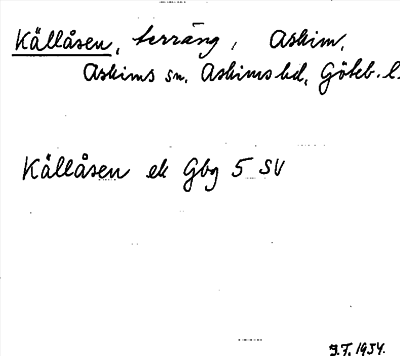 Källåsen, terräng, Askim,
Askims sn. Askims hd, Göteb. l.
Källåsen ek Gbg 5 SV
J.F. 1934.